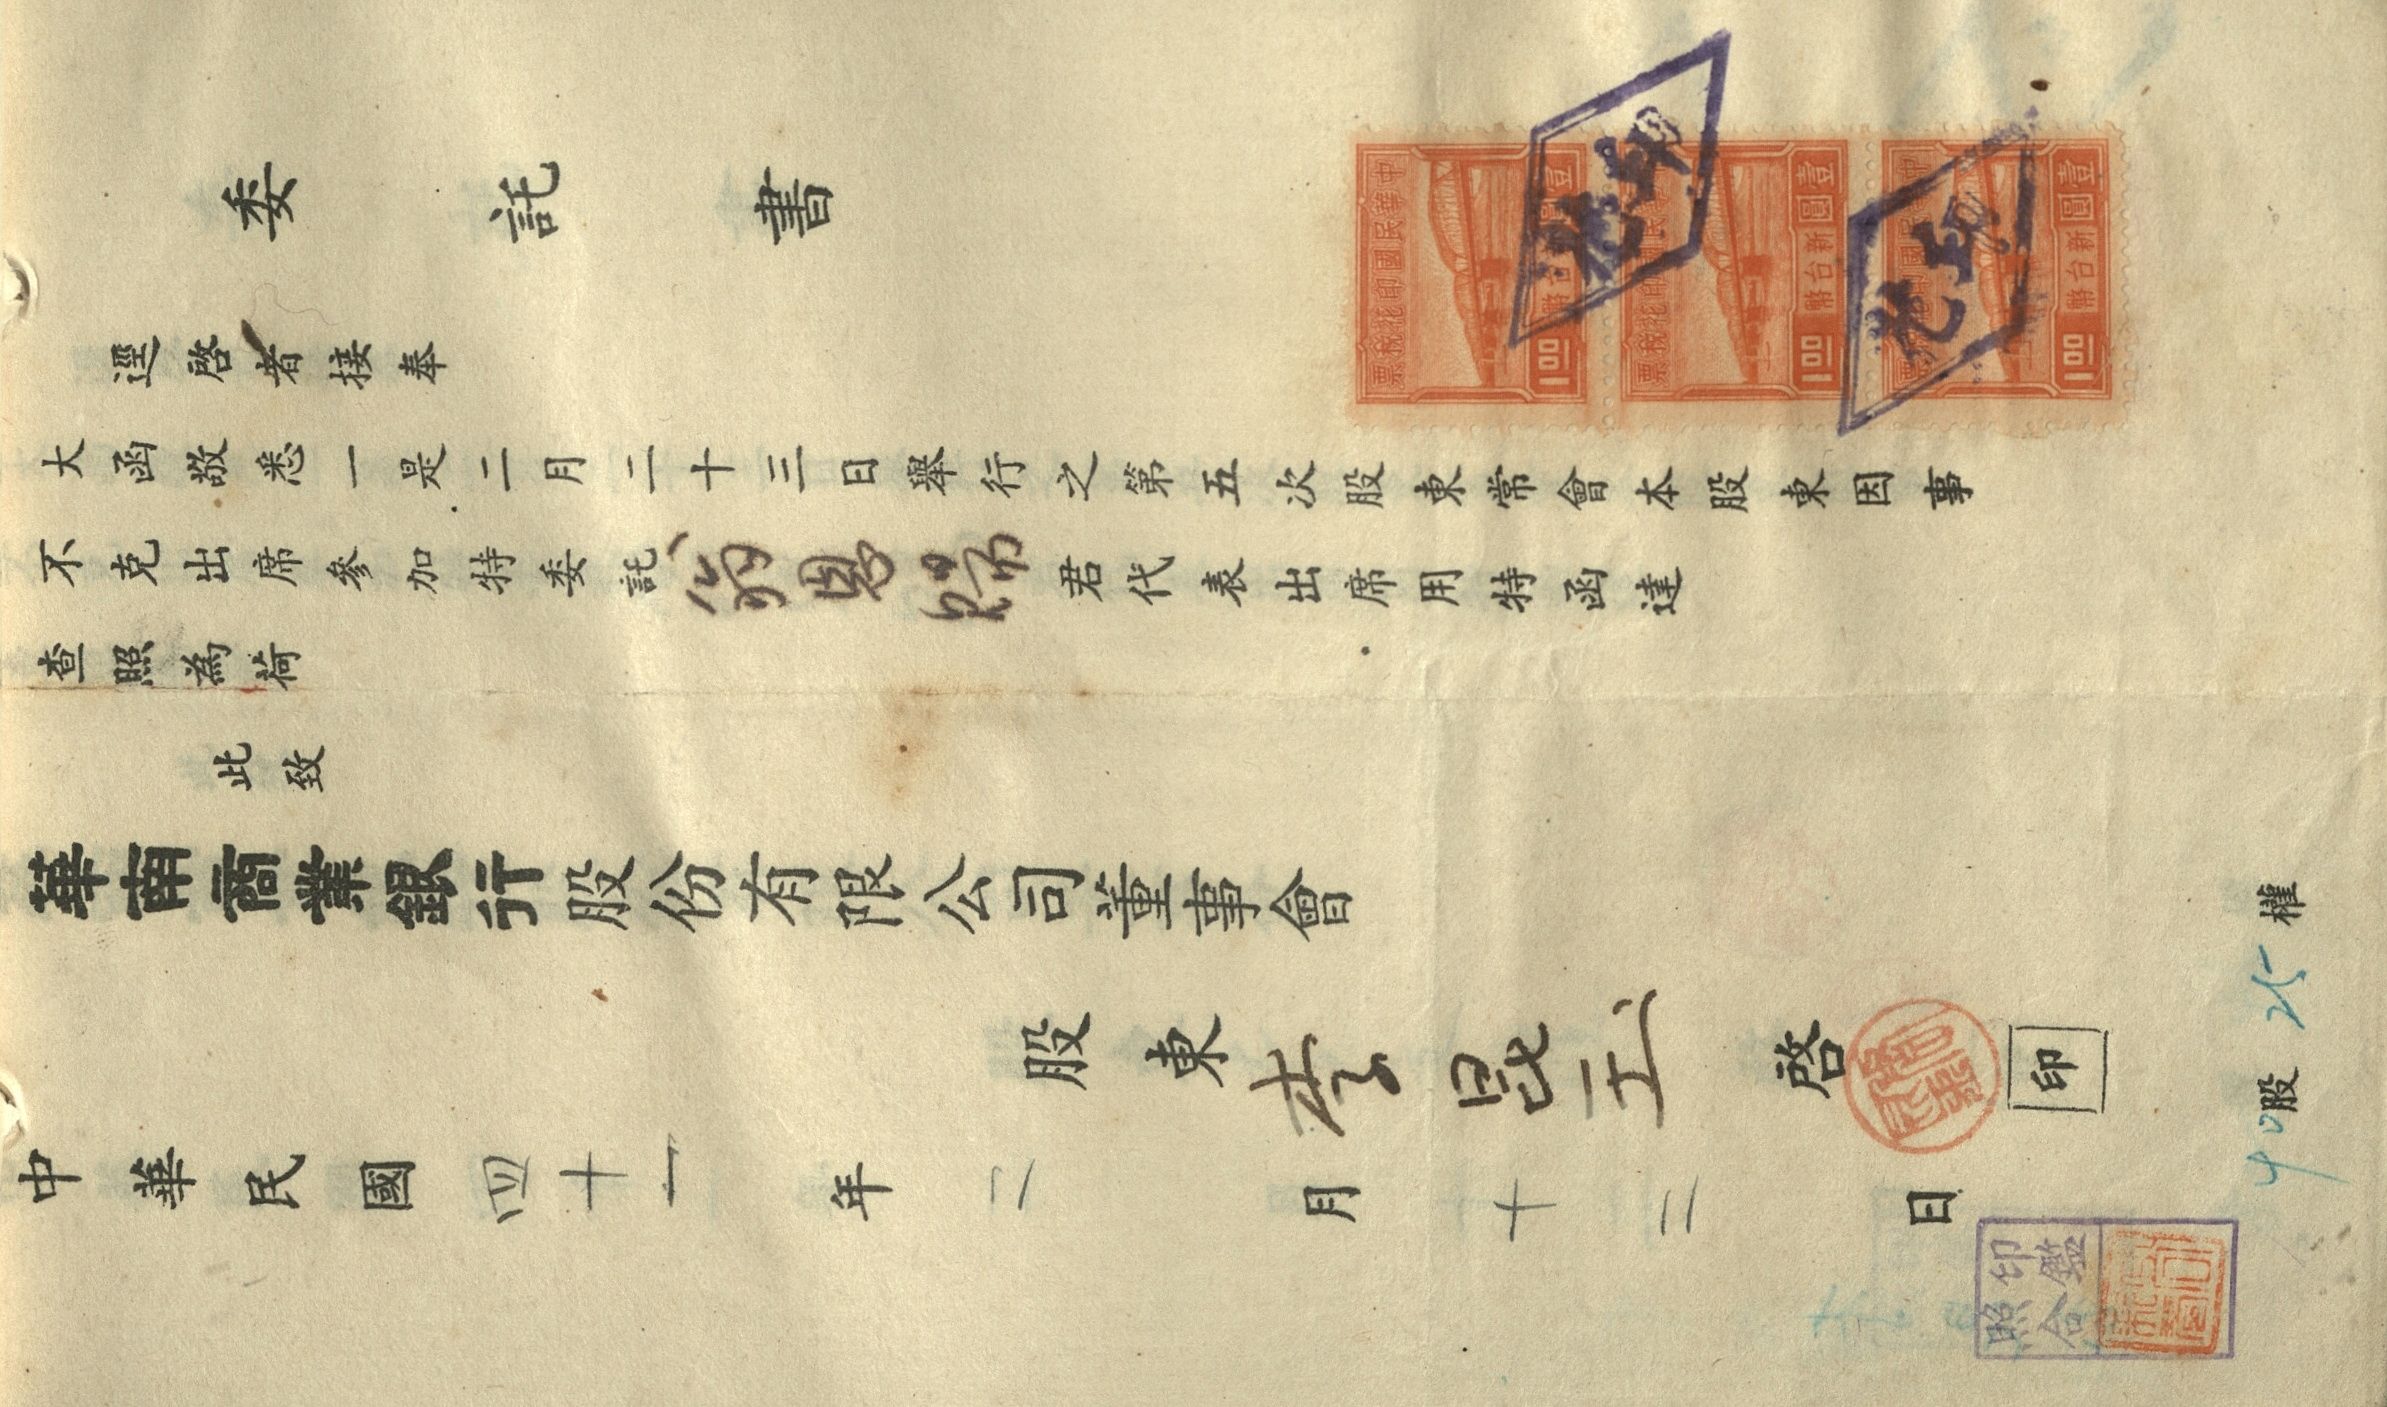 委託書
逕啓者接奉
大函敬悉一是二月二十三日舉行之第五次股東常會本股東因事
不克出席參加特委託翁恩賜君代表出席用特函達
查照為荷
此致
華南商業銀行股份有限公司董事會
股東李昆玉啓
印
中華民國四十一年二月十二日
40股25權
印鑑
照合
中華民國印花稅票
壹圓新台幣
1.00
中華民國印花稅票
壹圓新台幣
1.00
中華民國印花稅票
壹圓新台幣
1.00